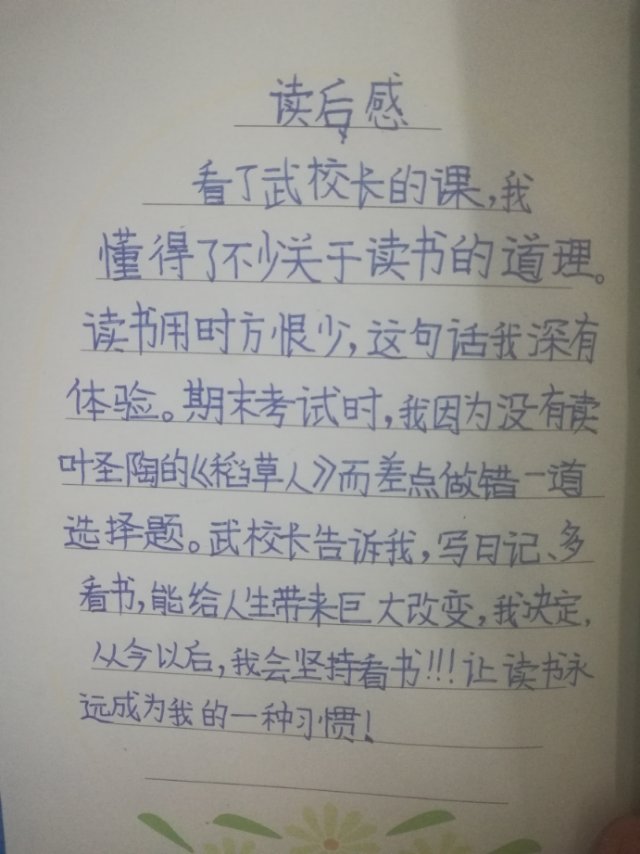 读后感
看了武校长的课,我
懂得了不少关于读书的道理。
读书用时方恨少,这句话我深有
体验。期末考试时,我因为没有读
叶圣陶的《稻草人》而差点做错一道
选择题。武校长告诉我,写日记、多
看书,能给人生带来巨大改变,我决定,
从今以后,我会坚持看书!!!让读书永
远成为我的一种习惯!